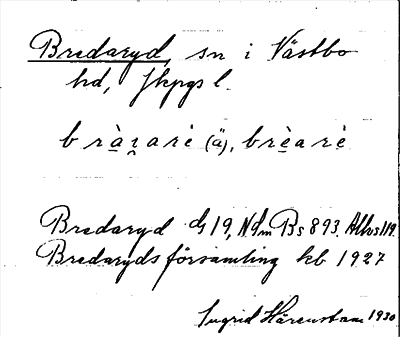 Bredaryd, sn i Västbo
hd, Jkpgs l.
bràɀarè (ä), brèarè
Bredaryd G 19, Bs 893.
Bredaryds församling kb 1927
Ingrid Härenstam 1930